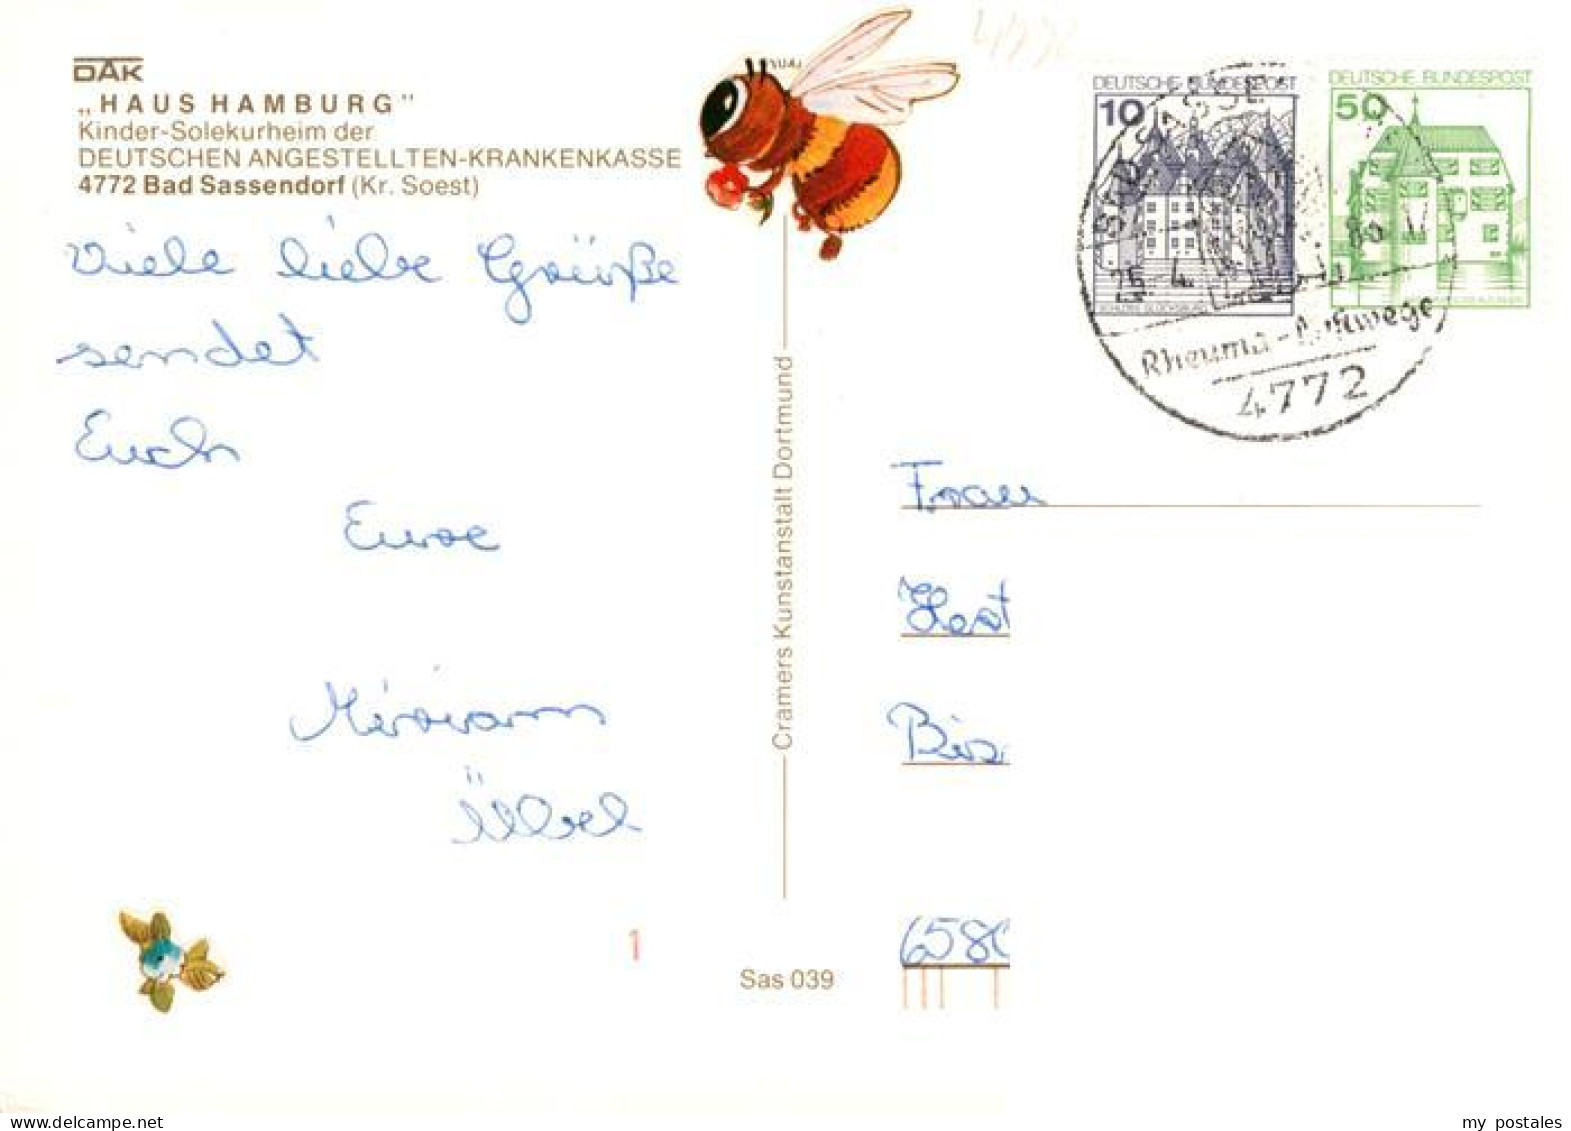 DAK
„HAUS HAMBURG”
Kinder-Solekurheim der
DEUTSCHEN ANGESTELLTEN-KRANKENKASSE
4772 Bad Sassendorf (Kr. Soest)
Viele liebe Grüße
sendet
Euch
Eure
Miriam
Cramers Kunstanstalt Dortmund
1
Sas 039
4772
DEUTSCHE BUNDESPOST
10
SCHLOSS GLÜCKSBURG
DEUTSCHE BUNDESPOST
50
BAD SASSE
25. 4.
Rheuma-
4772
Frau
6580
my postales